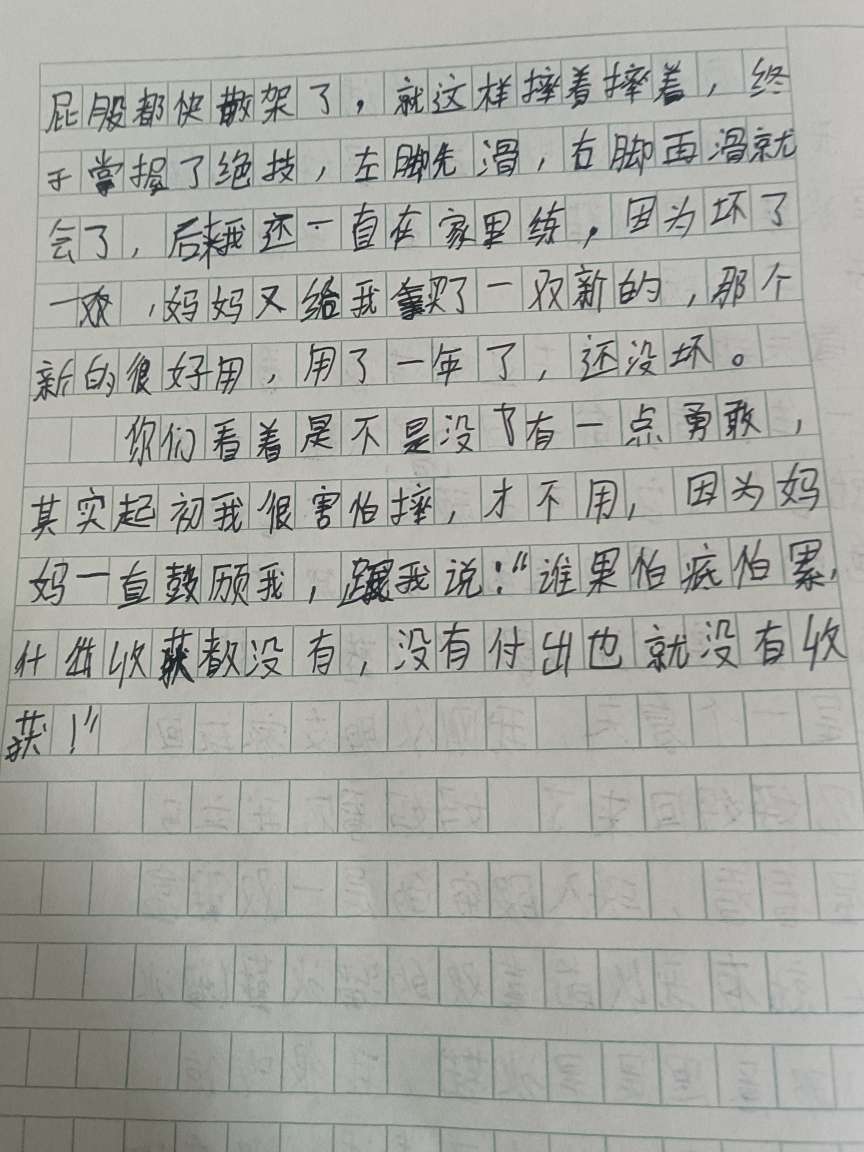 屁股都快散架了，就这样摔着摔着，终
于掌握了绝技，左脚先滑，右脚再滑就
会了，后来我还一直在家里练，因为坏了
一双，妈妈又给我买了一双新的，那个
新的很好用，用了一年了，还没坏。
你们看着是不是没有一点勇敢，
其实起初我很害怕摔，才不用，因为妈
妈一直鼓励我，跟我说：“谁果怕疲怕累，
什么收获都没有，没有付出也就没有收
获！”